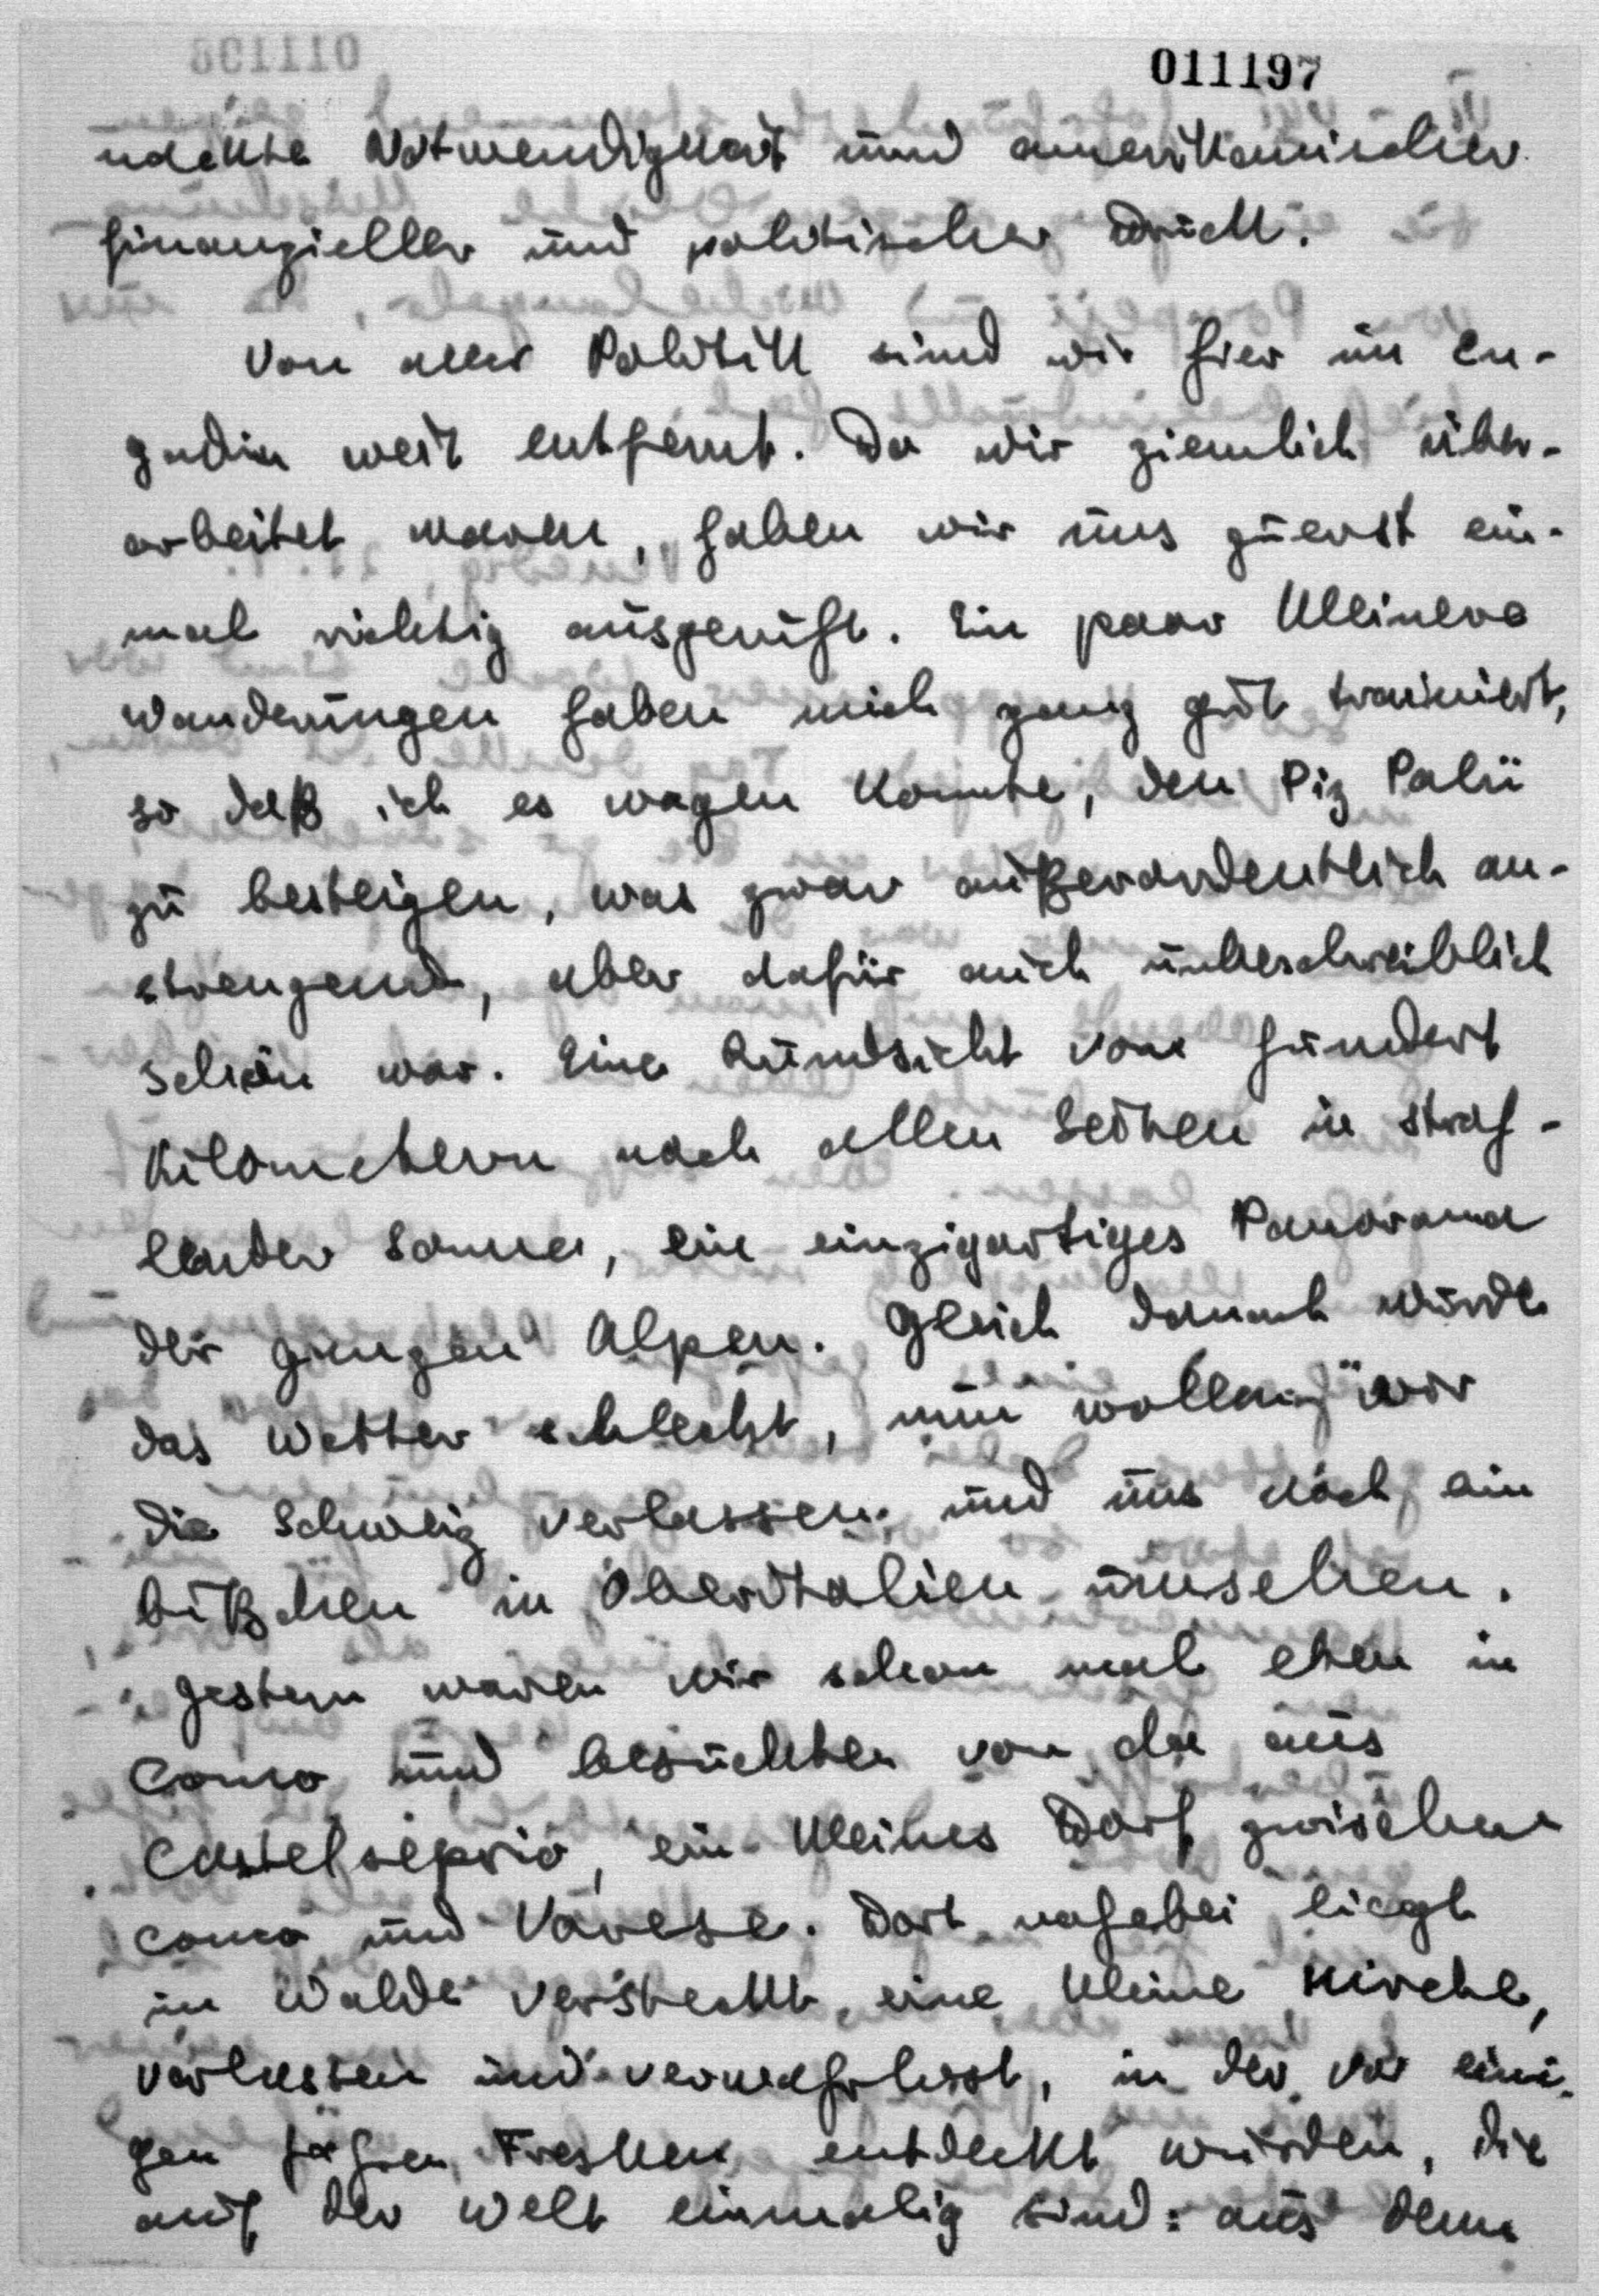 011197
nackte Notwendigkeit und amerikanischer
finanzieller und politischer Druck.
Von aller Politik sind wir hier im En-
gadin weit entfernt. Da wir ziemlich über-
arbeitet waren, haben wir uns zuerst ein-
mal richtig ausgeruht. Ein paar kleinere
Wanderungen haben mich ganz gut trainiert,
so daß ich es wagen konnte, den Piz Palü
zu besteigen, was zwar außerordentlich an-
strengend, aber dafür auch unbeschreiblich
schön war. Eine Rundsicht von hundert
Kilometern nach allen Seiten in strah-
lender Sonne, ein einzigartiges Panorama
der ganzen Alpen. Gleich danach wurde
das Wetter schlecht, nun wollen wir
die Schweiz verlassen und uns noch ein
bißchen in Oberitalien umsehen.
Gestern waren wir schon mal eben in
Como und besuchten von da aus
Castelseprio, ein kleines Dorf zwischen
Como und Varese. Dort nahebei liegt
im Walde versteckt eine kleine Kirche,
verlassen und verwahrlost, in der vor eini-
gen Jahren Fresken entdeckt wurden, die
auf der Welt einmalig sind: aus dem